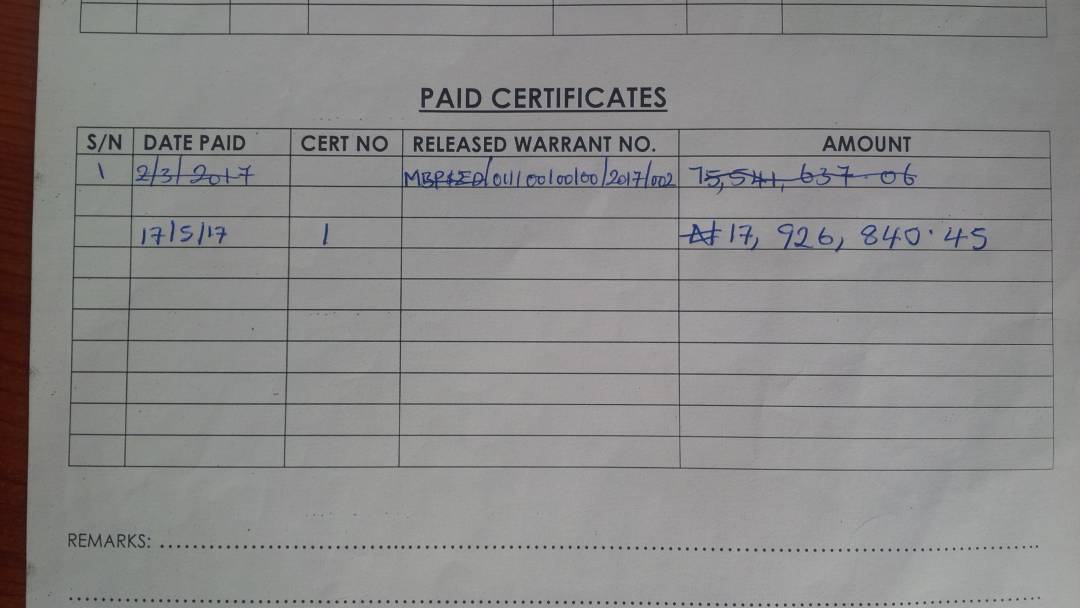 PAID CERTIFICATES
S/N DATE PAID CERT NO RELEASED WARRANT NO. AMOUNT
1 2/3/2017 MBP&ED/011/00100100/2017/002 75,541,637.06
17/5/17 1 ₦17,926,840.45
REMARKS: